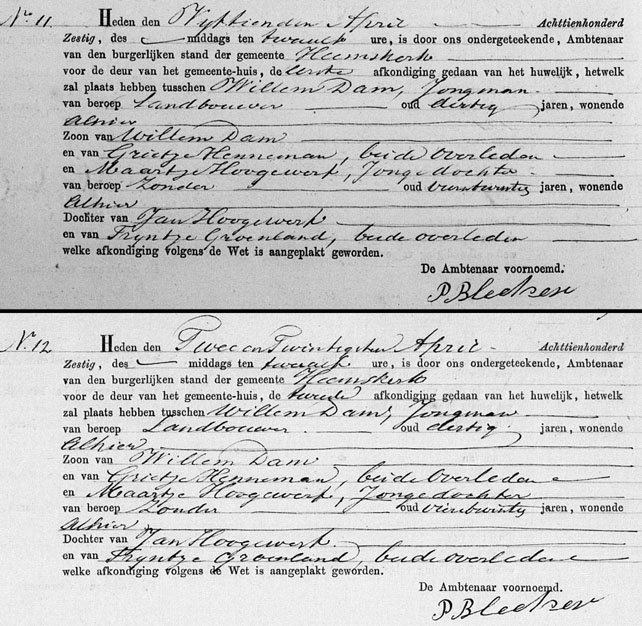 No. 11. Heden den Vijftienden April Achttienhonderd
Zestig, des middags ten twaalf ure, is door ons ondergeteekende, Ambtenaar
van den burgerlijken stand der gemeente Heemskerk
voor de deur van het gemeente-huis, de Eerste afkondiging gedaan van het huwelijk, hetwelk
zal plaats hebben tusschen Willem Dam, Jongman.
van beroep Landbouwer oud dertig jaren, wonende
Alhier
Zoon van Willem Dam
en van Grietje Henneman, beide overleden
en Maartje Hoogewerf, Jonge dochter
van beroep Zonder oud vierentwintig jaren, wonende
Alhier
Dochter van Jan Hoogewerf
en van Tryntje Groenland, beide overleden
welke afkondiging volgens de Wet is aangeplakt geworden.
De Ambtenaar voornoemd.
P Bleeker
No. 12 Heden den Twee en Twintigsten April Achttienhonderd
Zestig, des middags ten twaalf ure, is door ons ondergeteekende, Ambtenaar
van den burgerlijken stand der gemeente Heemskerk
voor de deur van het gemeente-huis, de tweede afkondiging gedaan van het huwelijk, hetwelk
zal plaats hebben tusschen Willem Dam, Jongman
van beroep Landbouwer oud dertig jaren, wonende
Alhier
Zoon van Willem Dam
en van Grietje Henneman, beide overleden
en Maartje Hoogewerf, Jonge dochter
van beroep Zonder oud vierentwintig jaren, wonende
Alhier
Dochter van Jan Hoogewerf
en van Tryntje Groenland, beide overleden
welke afkondiging volgens de Wet is aangeplakt geworden.
De Ambtenaar voornoemd.
P Bleeker